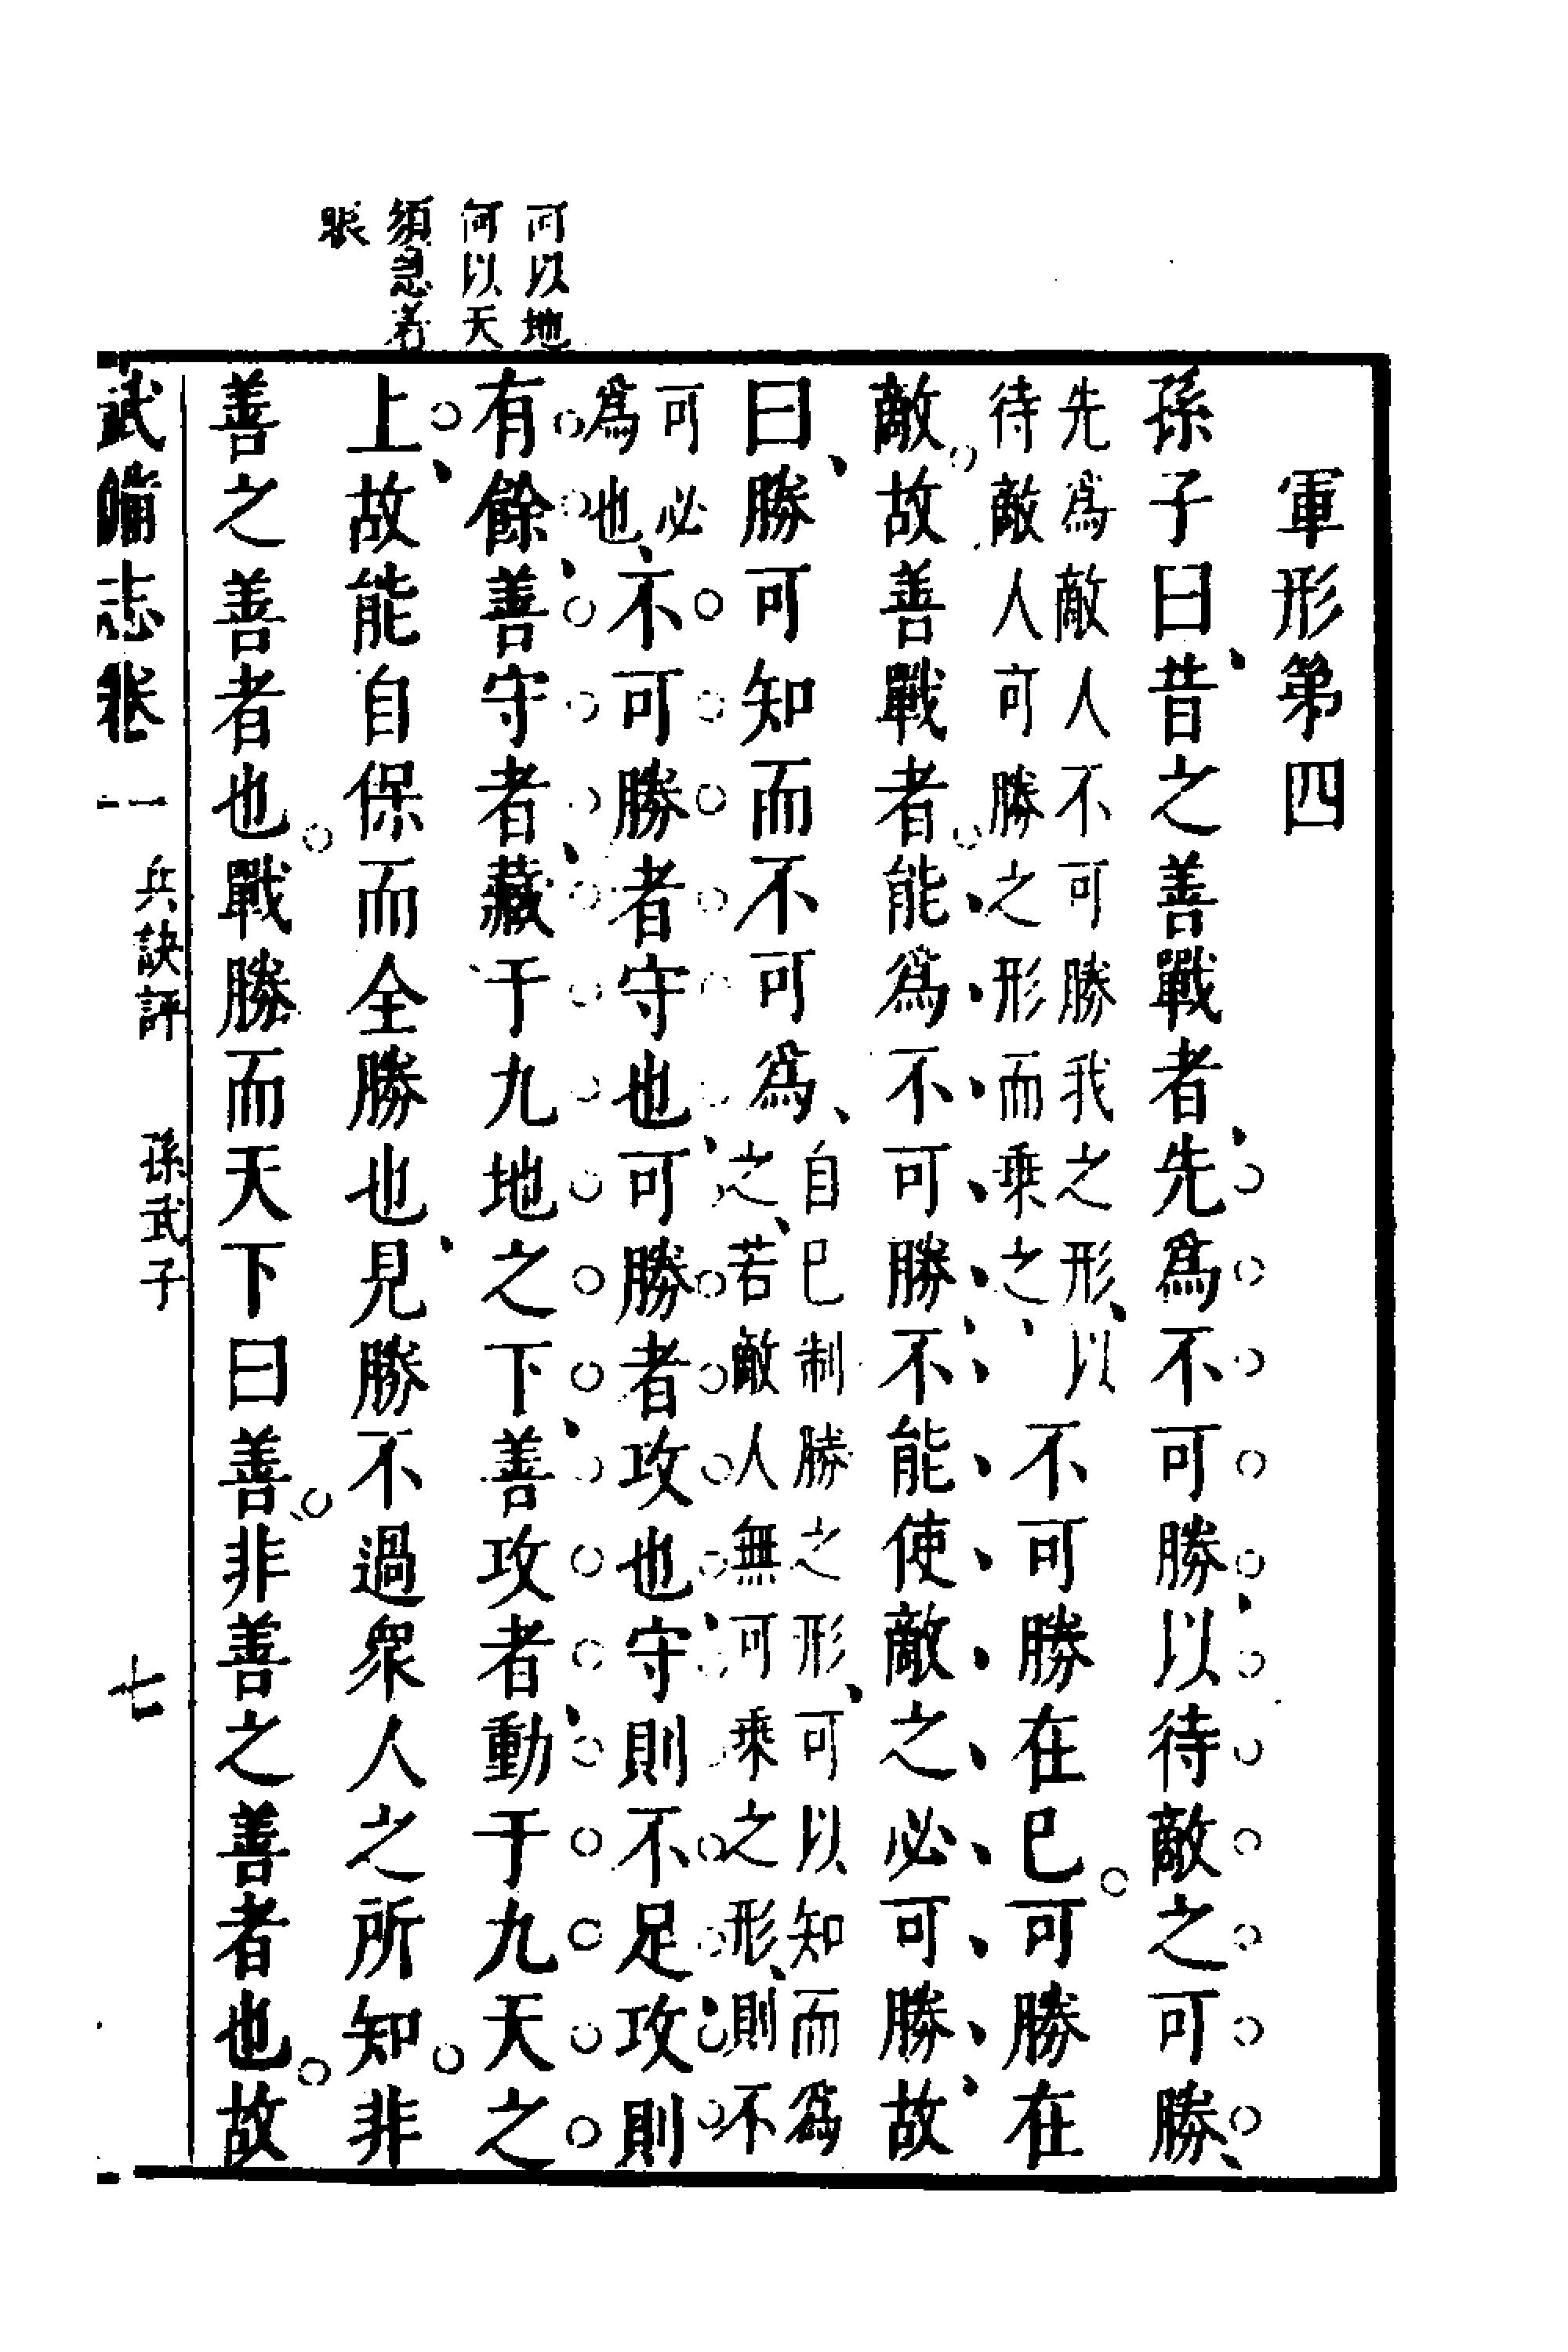 軍形第四
孫子曰昔之善戰者先爲不可勝以待敵之可勝
先爲敵人不可勝我之形以
待敵人可勝之形而乗之
不可勝在巳可勝在
敵故善戰者能爲不可勝不能使敵之必可勝故
曰勝可知而不可爲
自巳制勝之形可以知而爲
之若敵人無可乘之形則不
可必
爲也
不可勝者守也可勝者攻也守則不足攻則
有餘善守者藏于九地之下善攻者動于九天之
上故能自保而全勝也見勝不過衆人之所知非
善之善者也戰勝而天下曰善非善之善者也故
可以地
何以天
須急着
眼
武備志卷一 兵訣評 孫武子 七